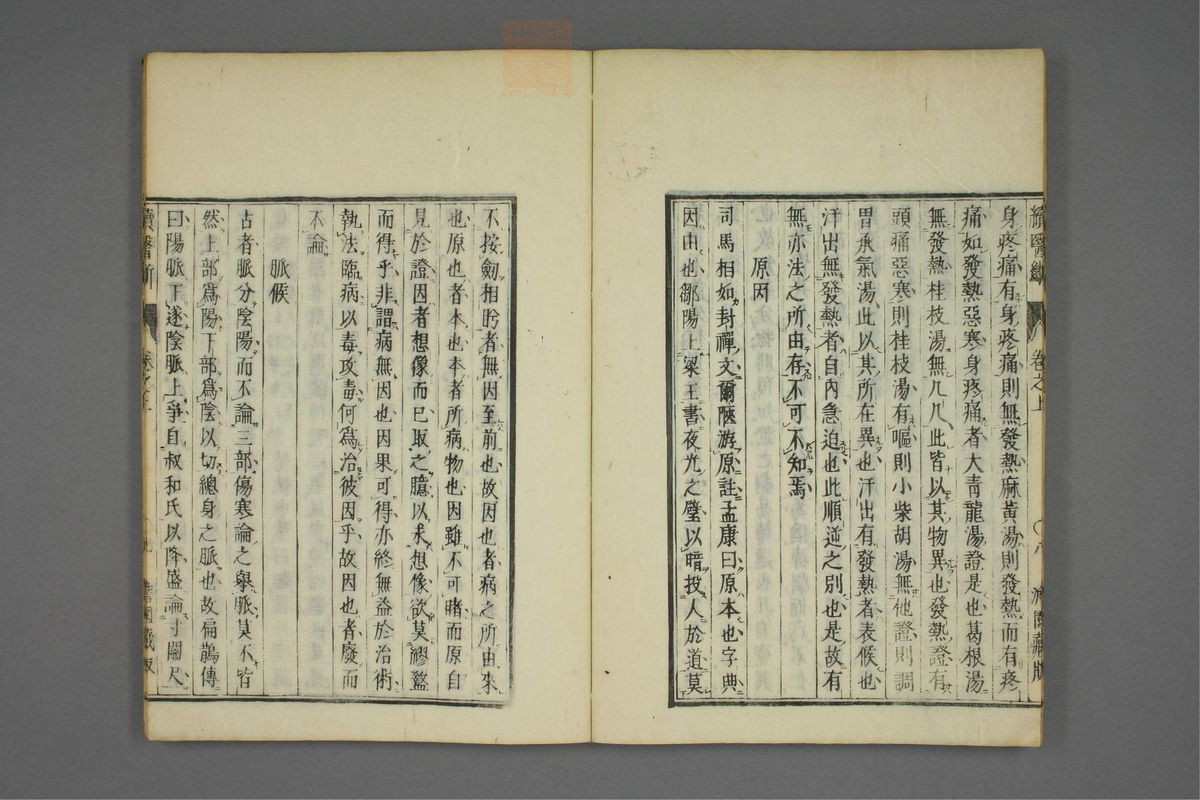 續醫斷 卷之上 八
身疼痛有身疼痛則無發熱麻黃湯則發熱而有疼
痛如發熱惡寒身疼痛者大青龍湯證是也葛根湯
無發熱桂枝湯無几几此皆以其物異也發熱證有
頭痛惡寒則桂枝湯有嘔則小柴胡湯無他證則調
胃承氣湯此以其所在異也汗出有發熱者表候也
汗出無發熱者自內急迫也此順逆之別也是故有
無亦法之所由存不可不知焉
原因
司馬相如封禪文爾陿游原註孟康曰原本也字典
因由也鄒陽上梁王書夜光之璧以暗投人於道莫
不按劒相眄者無因至前也故因也者病之所由來
也原也者本也本者所病物也因雖不可睹而原自
見於證因者想像而已取之臆以求想像欲莫繆盭
而得乎非謂病無因也因果可得亦終無益於治術
執法臨病以毒攻毒何爲治彼因乎故因也者廢而
不論
脈候
古者脈分陰陽而不論三部傷寒論之舉脈莫不皆
然上部爲陽下部爲陰以切總身之脈也故扁鵲傳
曰陽脈下遂陰脈上爭自叔和氏以降盛論寸關尺
續醫斷 卷之上 九